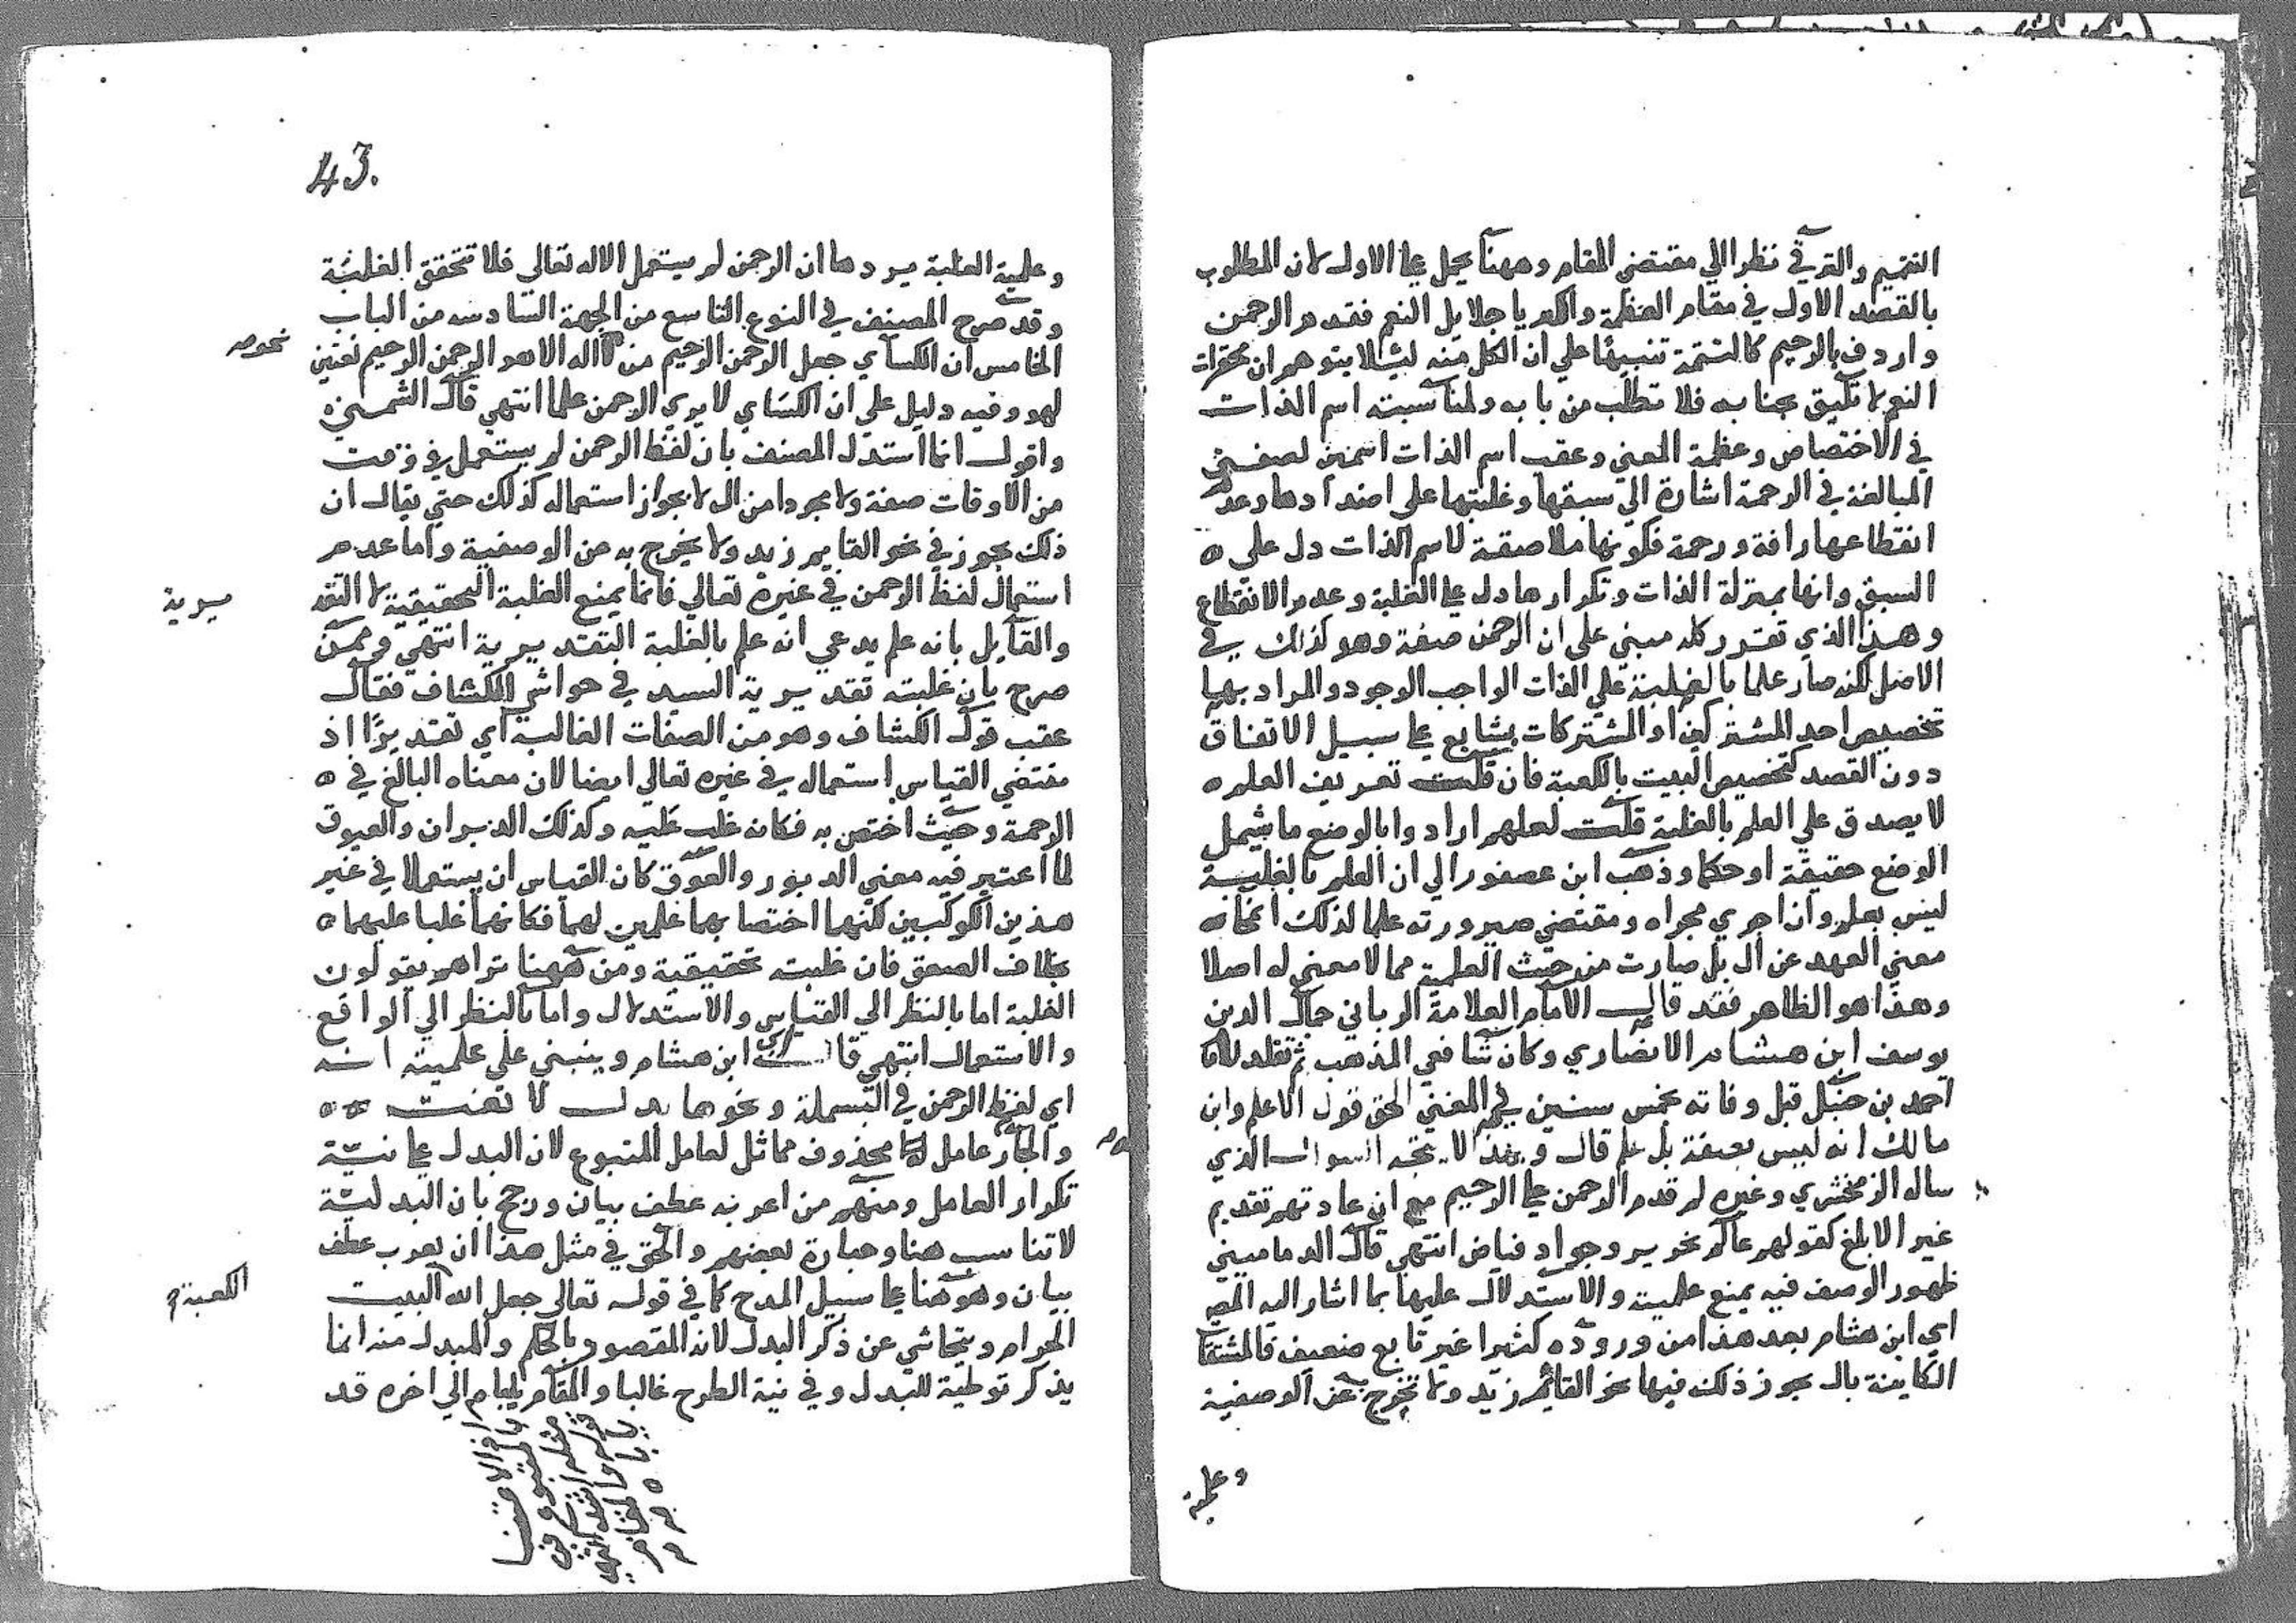 التتميم والترقي نظرا الي مقتضي المقام وههنا يحمل علي الاول لان المطلوب
بالقصد الاول في مقام العظمة والكبريا جلايل النعم فقدم الرحمن
واردف بالرحيم كالتتمة تنبيها علي ان الكل منه ليلا يتوهم ان محقرات
النعم لا تليق بجنابه فلا تطلب من بابه ولمناسبته اسم الذات
في الاختصاص وعظمة المعني وعقب اسم الذات اسمين لصفتي
المبالغة في الرحمة اشارة الي سبقها وغلبتها علي اضدادها وعدم
انقطاعها رافة ورحمة فكونها ملاصقة لاسم الذات دل علي
السبق وانها بمنزلة الذات وتكرارها دل علي الغلبة وعدم الانقطاع
وهذا الذي تقرر كله مبني علي ان الرحمن صفة وهو كذلك في
الاصل لكنه صار علما بالغلبة علي الذات الواجب الوجود والمراد بها
تخصيص احد المشتركين او المشتركات بشايع علي سبيل الاتفاق
دون القصد كتخصيص البيت بالكعبة فان قلت تعريف العلم
لا يصدق علي العلم بالغلبة قلت لعلهم ارادوا بالوضع ما يشمل
الوضع حقيقة او حكما وذهب ابن عصفور الي ان العلم بالغلبة
ليس بعلم وان اجري مجراه ومقتضي صيرورته علما لذلك انمحاه
معني العهد عن ال بل صارت من حيث العلمية مما لا معني له اصلا
وهذا هو الظاهر فقد قال الامام العلامة الرباني جمال الدين
يوسف ابن هشام الانصاري وكان شافعي المذهب ثم تقلد للامام
احمد بن حنبل قبل وفاته بخمس سنين في المغني الحق قول الاعلم وابن
مالك انه ليس بصفة بل علم قال وبهذا لا يتجه السوال الذي
ساله الزمخشري وغيره لم قدم الرحمن علي الرحيم مع ان عادتهم تقديم
غير الابلغ كقولهم عالم نحرير وجواد فياض انتهي قال الدماميني
ظهور الوصف فيه يمنع علميته والاستدلال عليها بما اشار اليه المص
اي ابن هشام بعد هذا من وروده كثيرا غير تابع ضعيف فالمشتقات
الكاينة بال يجوز ذلك فيها نحو القائم زيد ولا تخرج عن الوصفية
وعلمية
43.
وعلمية الغلبة يردها ان الرحمن لم يستعمل الا له تعالي فلا تتحقق الغلبة
وقد صرح المصنف في النوع التاسع من الجهة السادسه من الباب
الخامس ان الكسآي جعل الرحمن الرحيم من لا اله الا هو الرحمن الرحيم نعتين
لهو وفيه دليل علي ان الكساي لا يري الرحمن علما انتهي قال الشمني
واقول انما استدل المصنف بان لفظ الرحمن لم يستعمل في وقت
من الاوقات صفة ولا مجردا من ال لا بجواز استعماله كذلك حتي يقال ان
ذلك يجوز في نحو القايم زيد ولا يخرج به من الوصفية واما عدم
استعمال لفظ الرحمن في غيره تعالي فانما يمنع الغلبة التحقيقية لا التقد
يرية
والقايل بانه علم يدعي انه علم بالغلبة التقديرية انتهي وممن
صرح بان غلبته تقديرية السيد في حواشي الكشاف فقال
عقب قول الكشاف وهو من الصفات الغالبة اي تقديرًا اذ
مقتضي القياس استعماله في غيره تعالي ايضا لان معناه البالغ في
الرحمة وحيث اختص به فكانه غلب عليه وكذلك الدبران والعيوق
لما اعتبر فيه معني الدبور والعوق كان القياس ان يستعملا في غير
هذين الكوكبين لكنهما اختصا بهما علمين لهما فكانهما غلبا عليهما
بخلاف الصعق فان غلبته تحقيقية ومن ههنا تراهم يقولون
الغلبة اما بالنظر الي القياس والاستدلال واما بالنظر الي الواقع
والاستعمال انتهي قال ابن هشام وينبني علي علميته انه
اي لفظ الرحمن في البسملة ونحوها بدل لا نعت
والجار عامل محذوف مماثل لعامل المتبوع لان البدل علي نية
تكرار العامل ومنهم من اعربه عطف بيان ورجح بان البدلية
لا تناسب هنا وعبارة بعضهم والحق في مثل هذا ان يعرب عطف
بيان وهو هنا علي سبيل المدح كما في قوله تعالي جعل الله البيت
الكعبة
الحرام ويتحاشي عن ذكر البدل لانه المقصود بالحكم والمبدل منه انما
يذكر توطية للبدل وفي نية الطرح غالبا والمقام الي اخره قد